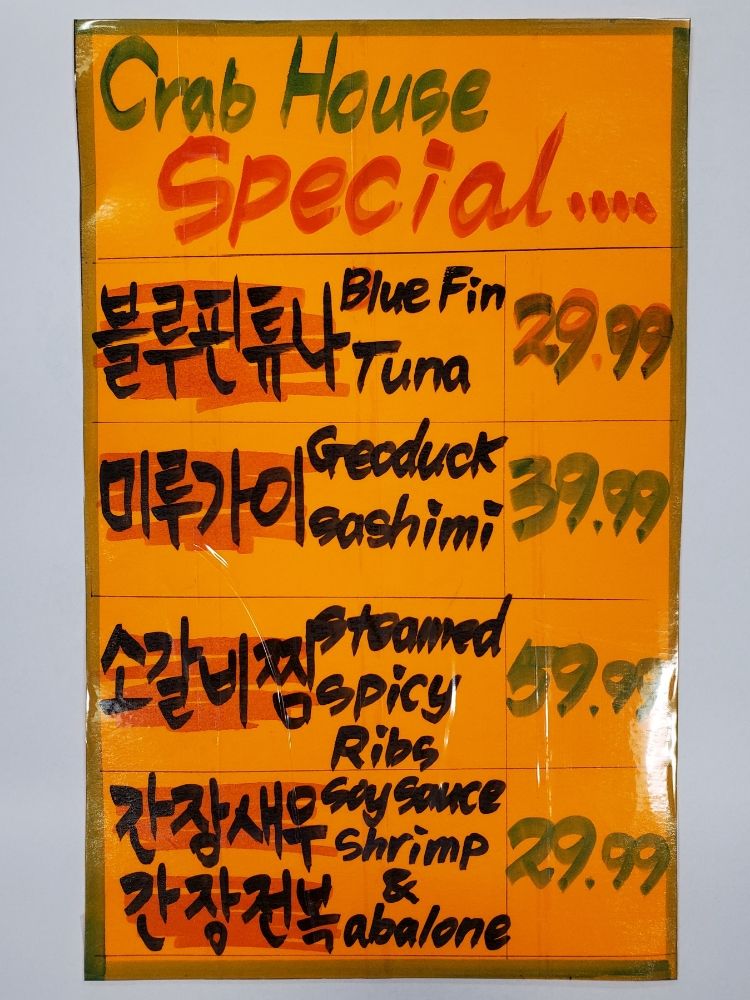 Crab House
Special....
블루핀튜나 Blue Fin Tuna 29.99
미루가이 Geoduck sashimi 39.99
소갈비찜 Steamed spicy Ribs 59.99
간장새우 soy sauce shrimp
&
간장전복 abalone 29.99